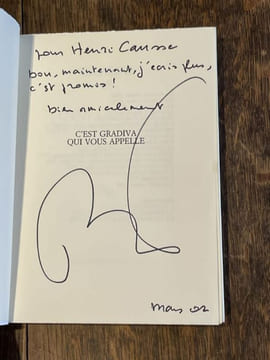 pour Henri Causse
bon, maintenant, j'écris plus,
c'est promis !
bien amicalement
C'EST GRADIVA
QUI VOUS APPELLE
mars 02